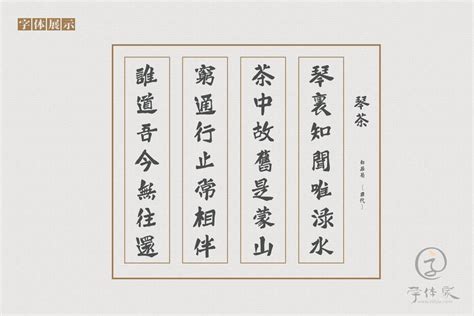 字体展示
琴茶
白居易
琴裏知聞唯淥水
茶中故舊是蒙山
窮通行止常相伴
誰道吾今無往還
字体家